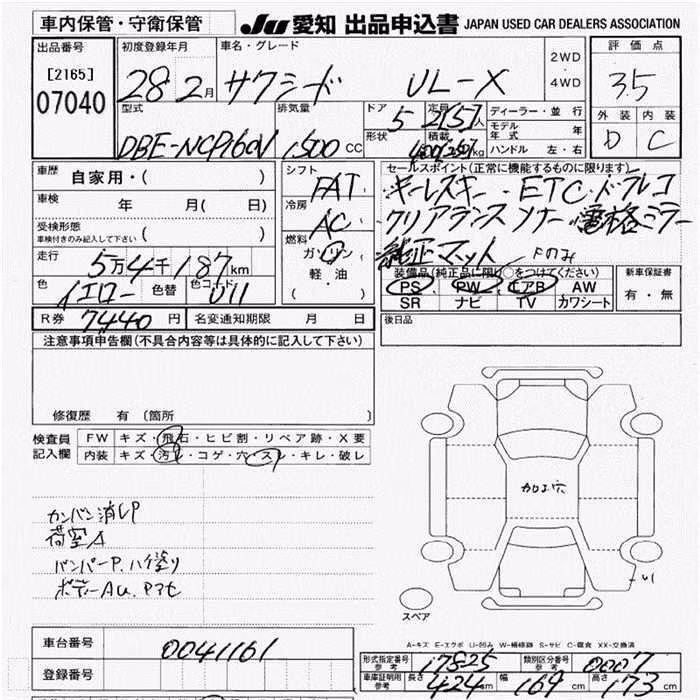 車内保管・守衛保管
JU 愛知 出品申込書 JAPAN USED CAR DEALERS ASSOCIATION
出品番号
[2165]
07040
初度登録年月
28年 2月
車名・グレード
サクシード UL-X
2WD
・
4WD
評価点
3.5
外装 内装
D C
型式
DBE-NCP160V
排気量
1500 CC
ドア
5
形状
定員
2(5)人
積載
400(250)kg
ディーラー・並行
モデル年式 年
ハンドル 左・右
車歴
自家用・( )
車検
年 月( 日)
受検形態
車検付きのみ記入して下さい
( )
走行
5万4千187km
色
イエロー
色替
色コード
U11
R券
7440円
名変通知期限 月 日
シフト
FAT
冷房
AC
燃料
ガソリン
軽・油
( )
セールスポイント(正常に機能するものに限ります)
キーレスキー・ETC・ドラレコ
クリアランスソナー 電格ミラー
純正マット Fのみ
装備品(純正品に限り○をつけてください)
PS PW エアB AW
SR ナビ TV カワシート
新車保証書
有・無
後日品
注意事項申告欄(不具合内容等は具体的に記入して下さい)
修復歴 有〔箇所 〕
検査員
記入欄
FW キズ・飛石・ヒビ割・リペア跡・X要
内装 キズ・汚レ・コゲ・穴・スレ・キレ・破レ
カンバン消しP
荷室A
バンパーP、ハケ塗り
ボディーAU、Pマセ
加工穴
-U1
スペア
A-キズ E-エクボ U-凹み W-補修跡 S-サビ C-腐食 XX-交換済
車台番号
0041161
登録番号
形式指定番号
参考
17825
類別区分番号
参考
0007
車庫証明用
参考
長さ 424cm
幅 169cm
高さ 173cm